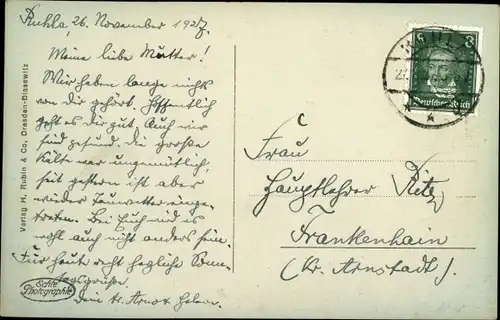 Ruhla, 26. November 1927.
Meine liebe Mutter!
Wir haben lange nichts
von dir gehört. Hoffentlich
geht es dir gut. Auch wir
sind gesund. Die große
Kälte war ungemütlich,
seit gestern ist aber
wieder Tauwetter einge-
treten. Bei Euch wird es
wohl auch nicht anders sein.
Für heute recht herzliche Sonn-
tagsgrüße.
Dein
Echte
Photographie
Verlag H. Rubin & Co., Dresden-Blasewitz
8 8
Deutsches Reich
Frau
Hauptlehrer Ritz
Frankenhain
(Kr. Arnstadt).